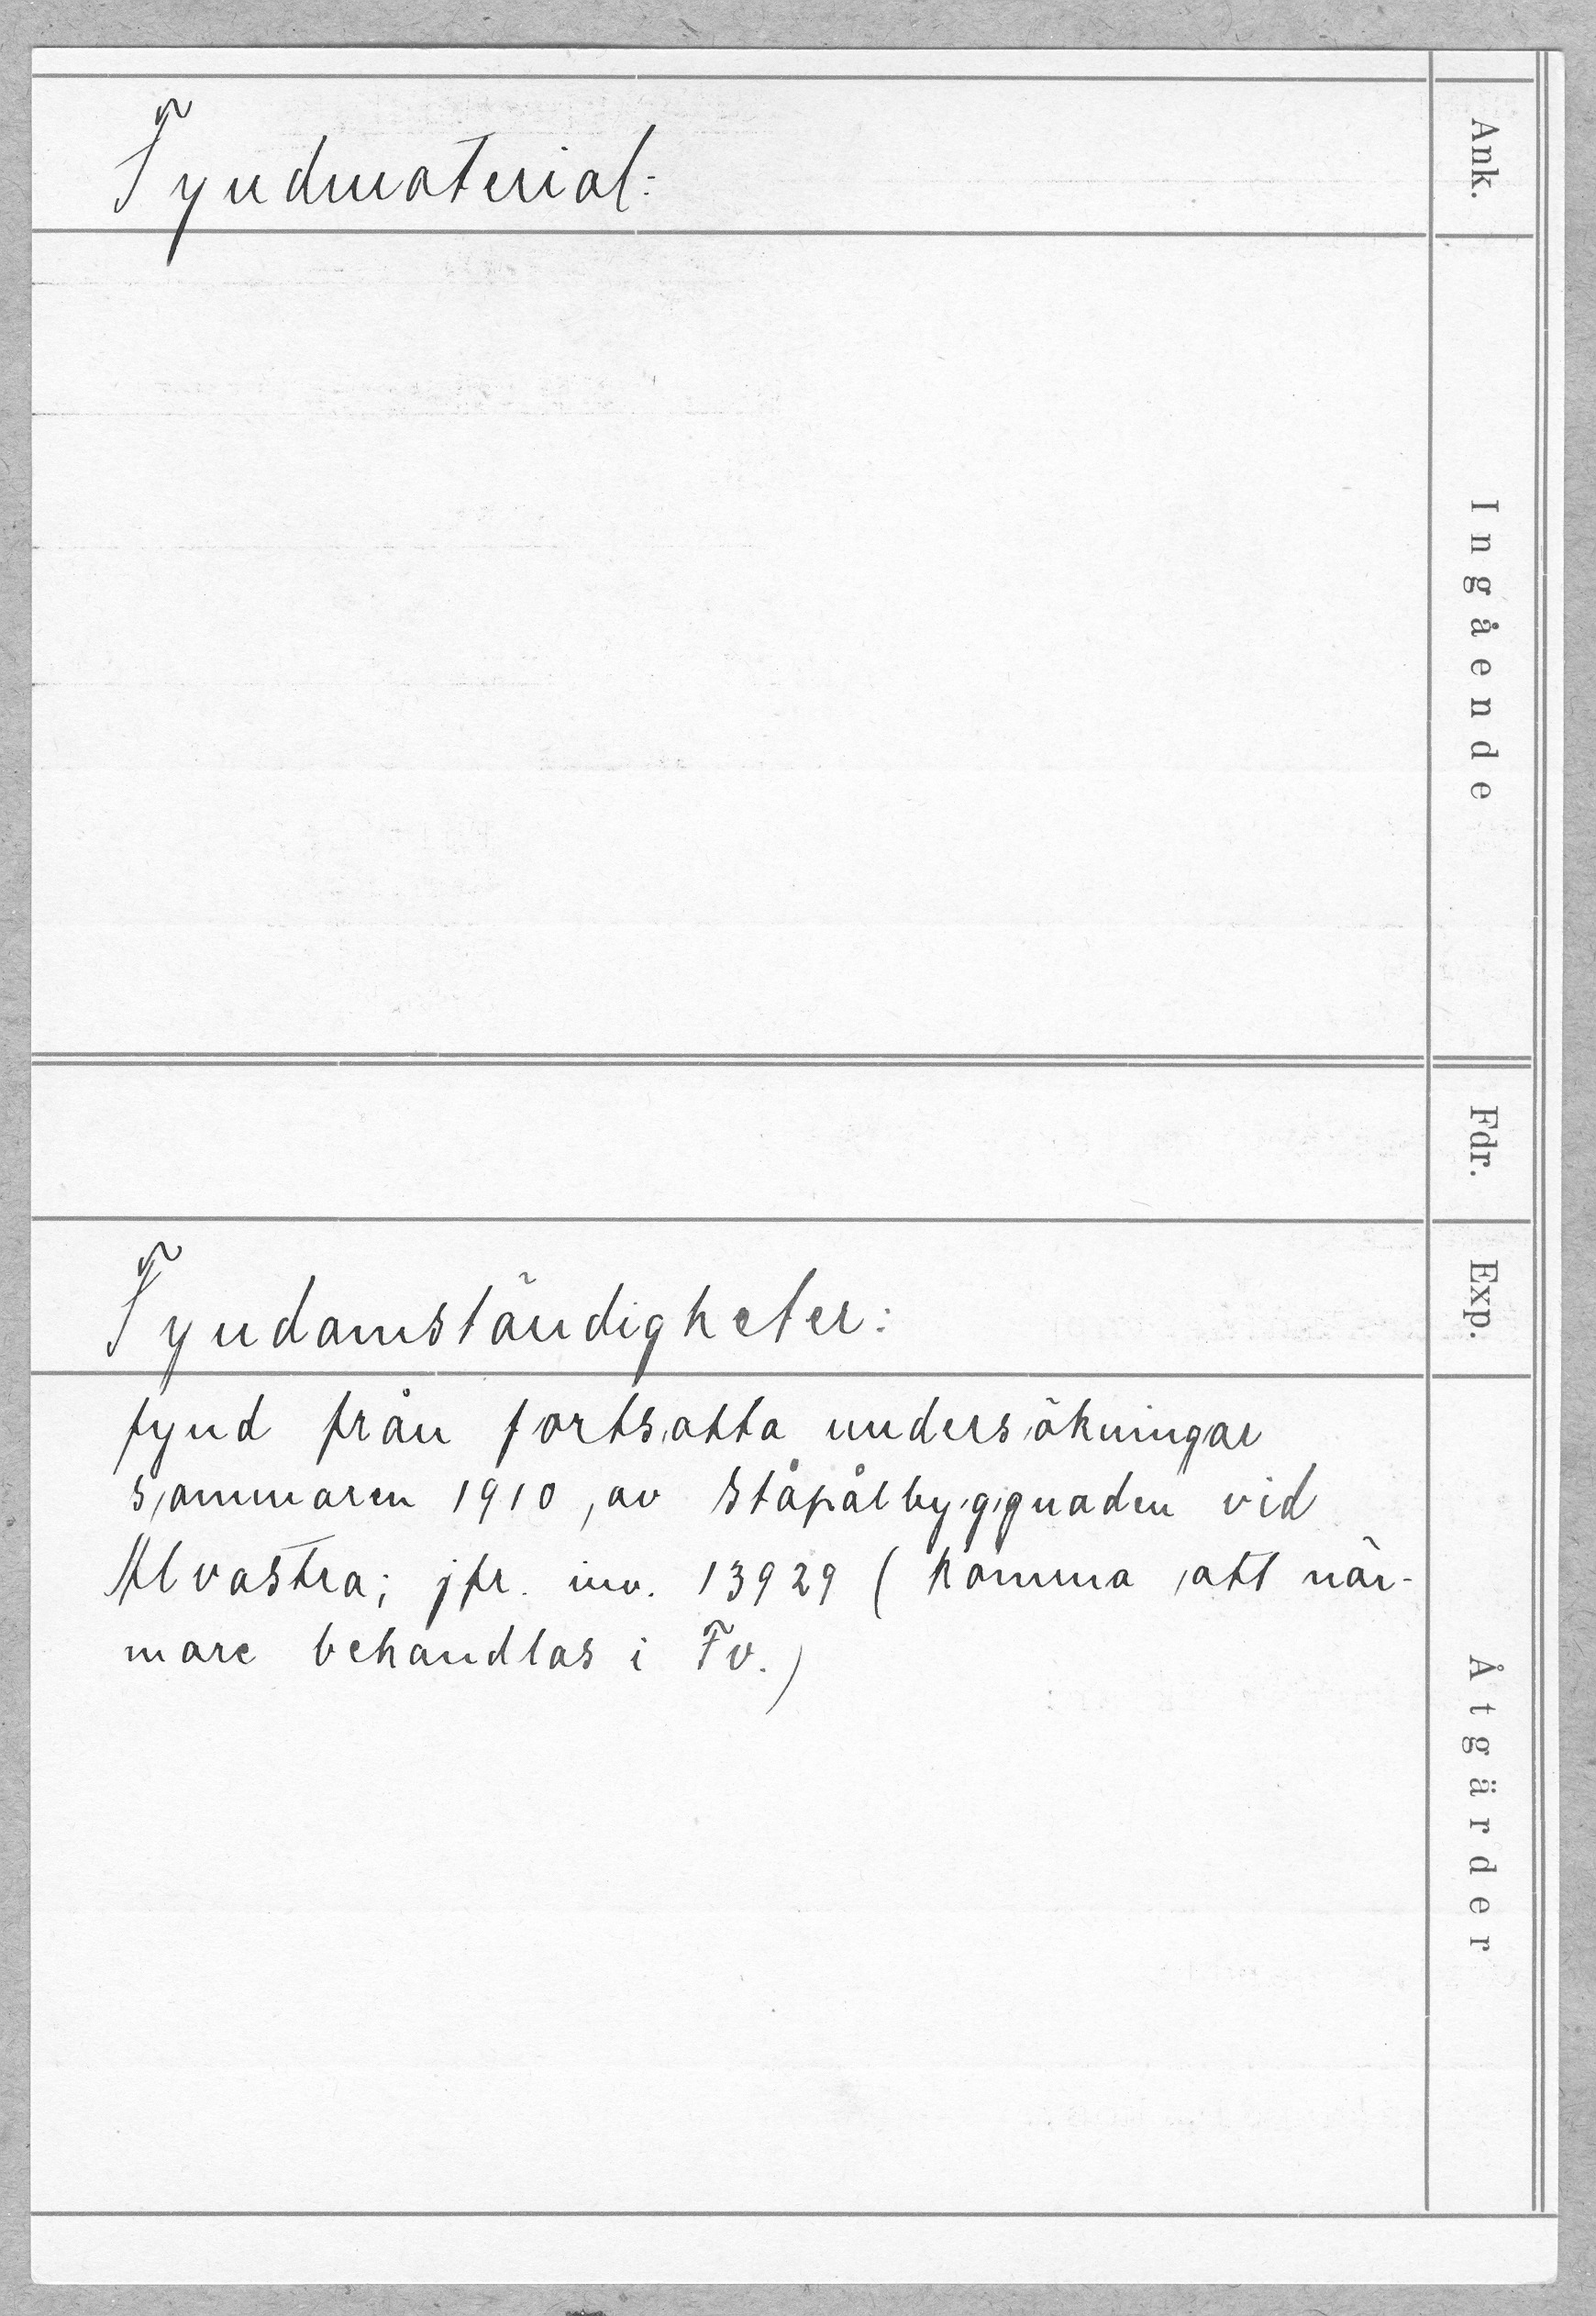 Fyndmaterial:
Fyndomständigheter:
fynd från fortsatta undersökningar
sommaren 1910, av stapålbyggnaden vid
Alvastra; jfr. inv. 13929 (komma att när-
mare behandlas i Fv.)
Ank.
Ingående
Fdr.
Exp.
Åtgärder